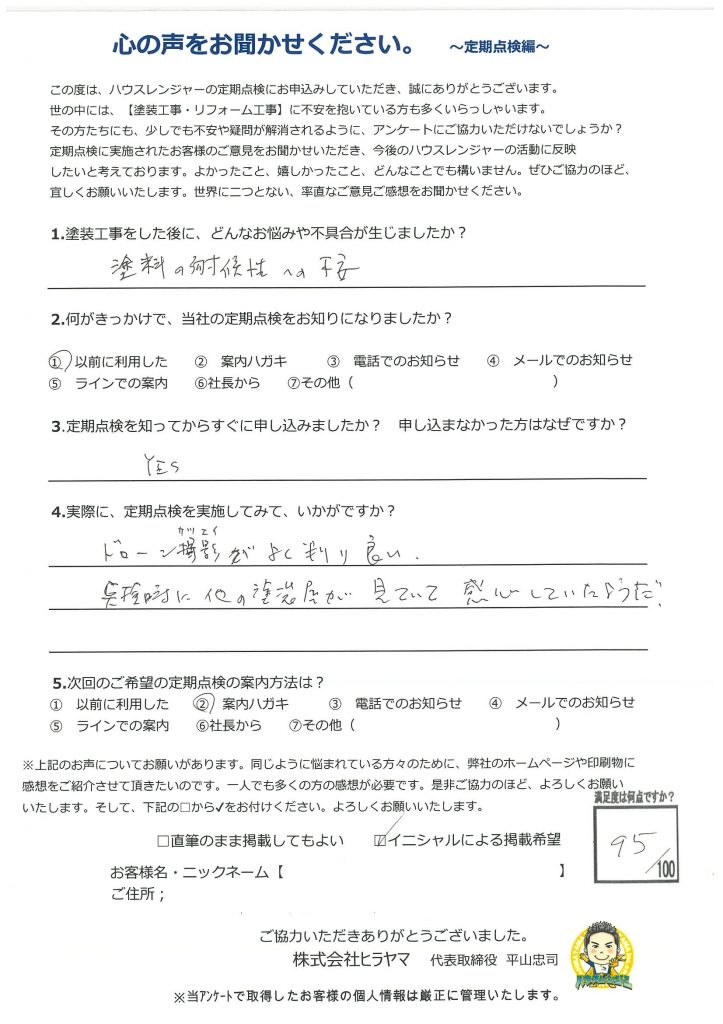 心の声をお聞かせください。 ～定期点検編～
この度は、ハウスレンジャーの定期点検にお申込みしていただき、誠にありがとうございます。
世の中には、【塗装工事・リフォーム工事】に不安を抱いている方も多くいらっしゃいます。
その方たちにも、少しでも不安や疑問が解消されるように、アンケートにご協力いただけないでしょうか？
定期点検に実施されたお客様のご意見をお聞かせいただき、今後のハウスレンジャーの活動に反映
したいと考えております。よかったこと、嬉しかったこと、どんなことでも構いません。ぜひご協力のほど、
宜しくお願いいたします。世界に二つとない、率直なご意見ご感想をお聞かせください。
1.塗装工事をした後に、どんなお悩みや不具合が生じましたか？
塗料の耐候性への不安
2.何がきっかけで、当社の定期点検をお知りになりましたか？
① 以前に利用した ② 案内ハガキ ③ 電話でのお知らせ ④ メールでのお知らせ
⑤ ラインでの案内 ⑥社長から ⑦その他（ ）
3.定期点検を知ってからすぐに申し込みましたか？ 申し込まなかった方はなぜですか？
YES
4.実際に、定期点検を実施してみて、いかがですか？
サツエイ
ドローン撮影がよく判り良い.
点検時に他の塗装屋が見ていて感心していたようだ.
5.次回のご希望の定期点検の案内方法は？
① 以前に利用した ② 案内ハガキ ③ 電話でのお知らせ ④ メールでのお知らせ
⑤ ラインでの案内 ⑥社長から ⑦その他（ ）
※上記のお声についてお願いがあります。同じように悩まれている方々のために、弊社のホームページや印刷物に
感想をご紹介させて頂きたいのです。一人でも多くの方の感想が必要です。是非ご協力のほど、よろしくお願い
いたします。そして、下記の□から✓をお付けください。よろしくお願いいたします。
満足度は何点ですか？
95/100
□直筆のまま掲載してもよい ☑イニシャルによる掲載希望
お客様名・ニックネーム【 】
ご住所；
ご協力いただきありがとうございました。
株式会社ヒラヤマ 代表取締役 平山忠司
ハウスレンジャー
※当アンケートで取得したお客様の個人情報は厳正に管理いたします。